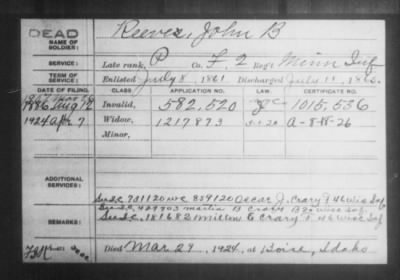 DEAD
NAME OF SOLDIER: Reeves, John B
SERVICE: Late rank, P Co. F 2 Reg't Minn Inf
TERM OF SERVICE: Enlisted July 8, 1861 Discharged July 11, 1865
DATE OF FILING. CLASS. APPLICATION NO. CERTIFICATE NO.
1886 Aug Invalid, 582,520 1015,536
1924 Apr 7 Widow, 1217873 A-8-18-26
Minor,
ADDITIONAL SERVICES:
731120 WC 859120 Oscar J. Crary F 46 Wis Inf
REMARKS: 181682 Milton C Crary F 46 Wis Inf
Died Mar 29, 1924, at Boise, Idaho